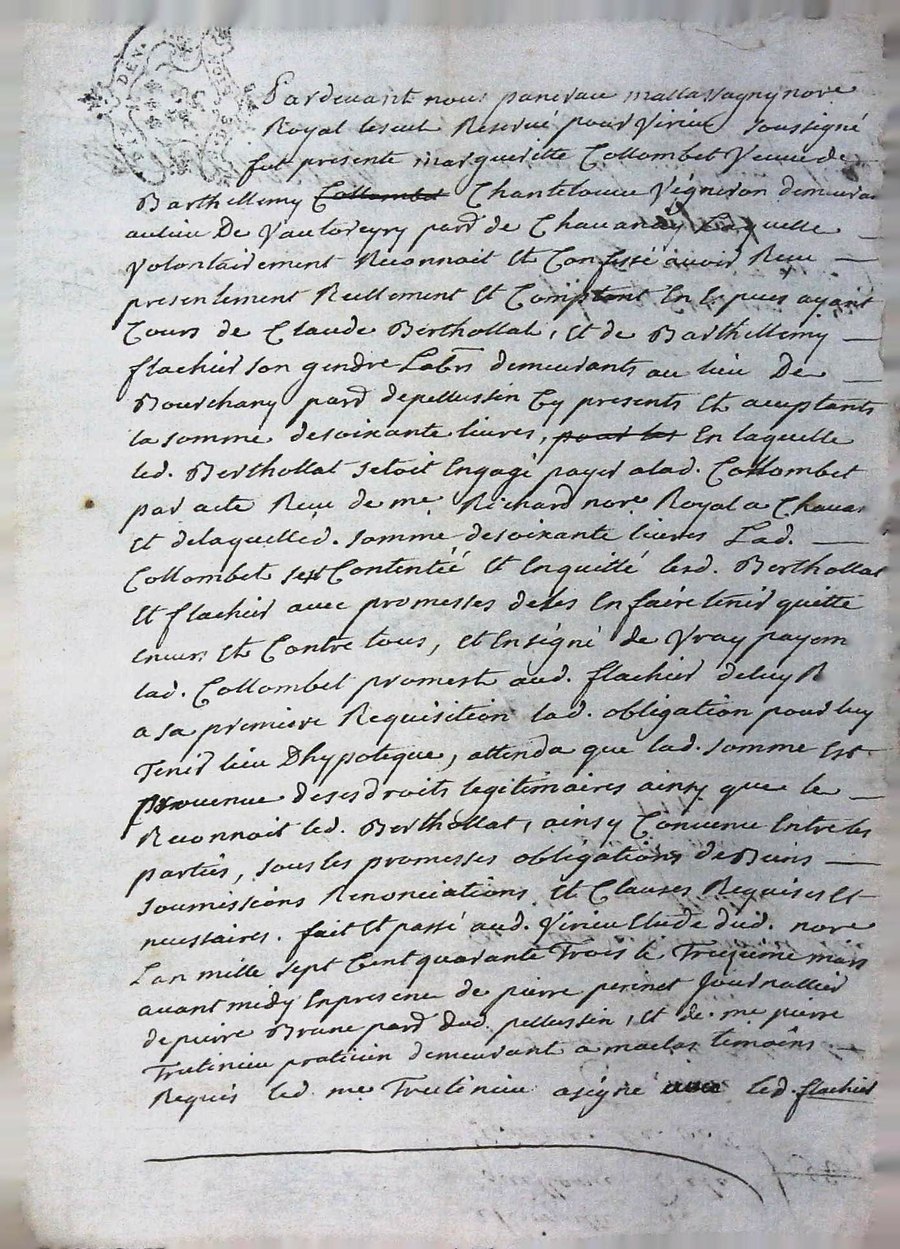 Pardevant nous pancrace mallassagny nore
Royal leseul Reservé pour Virieu soussigné
fut presente marguerite Collombet Veuve de
Barthellemy Collombet Chantelouve Vigneron demeurant
aulieu De Vautoreyry parr de Chavanay Laquelle
Volontairement Reconnoit Et Confessé avoir Reçu
presentement Reellement Et Comptant En Espuces ayant
Cours de Claude Berthollat, Et de Barthellemy
flachier son gendre Labrs demeurants au lieu De
Bourchany parr depellussin Cy presents Et acceptants
la somme desoixante livres, pour les En laquelle
led. Berthollat setoit Engagé payer alad. Collombet
par acte Reçu de me Richard nore Royal a Chava
Et delaquelled. somme desoixante livres Lad.
Collombet sest Contentéé Et Enquitté lesd. Berthollat
Et flachier avec promesses deles En faire tenir quitte
Envers Et Contre tous, Et Ensigné de Vray payem
lad. Collombet promest aud. flachier deluy R
a sa premiere Requisition lad. obligation pour luy
Tenir lieu Dhypoteque, attendu que lad. somme Est
provenue desesdroits legitimaires ainsy que le
Reconnoit led. Berthollat, ainsy Convenu Entre les
partiés, sous les promesses obligations de Biens
soumissions Renonciations Et Clauses Requises Et
necessaires. fait Et passé aud. Virieu Etude dud. nore
Lan mille sept Cent quarante Trois le Treizieme mars
avant midy Enpresence de pierre perinet Journallier
de pierre Brune parr dud. pellussin, Et de me pierre
Trulinieu praticien demeurant a maclas temoins
Requis led me Trulinieu asigné avec led. flachier